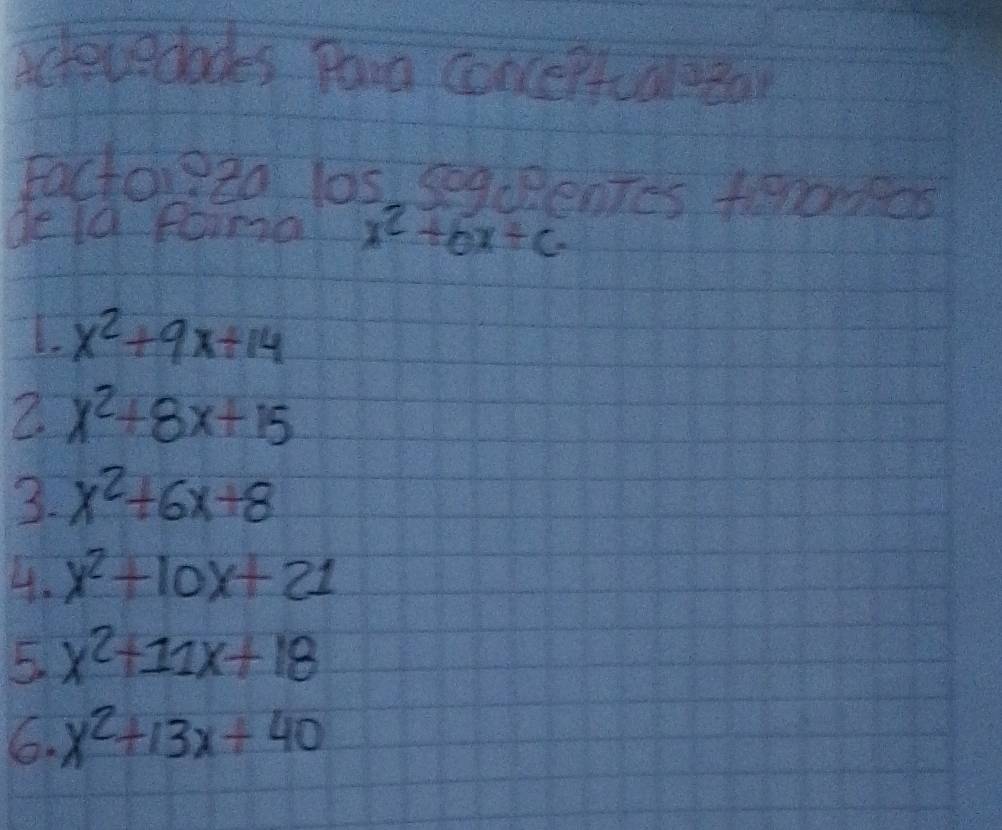 Actividades Para Conceptualizar
Factoriza los siguientes trinomios
de la forma x² + bx + c.
1. x² + 9x + 14
2. x² + 8x + 15
3. x² + 6x + 8
4. x² + 10x + 21
5. x² + 11x + 18
6. x² + 13x + 40